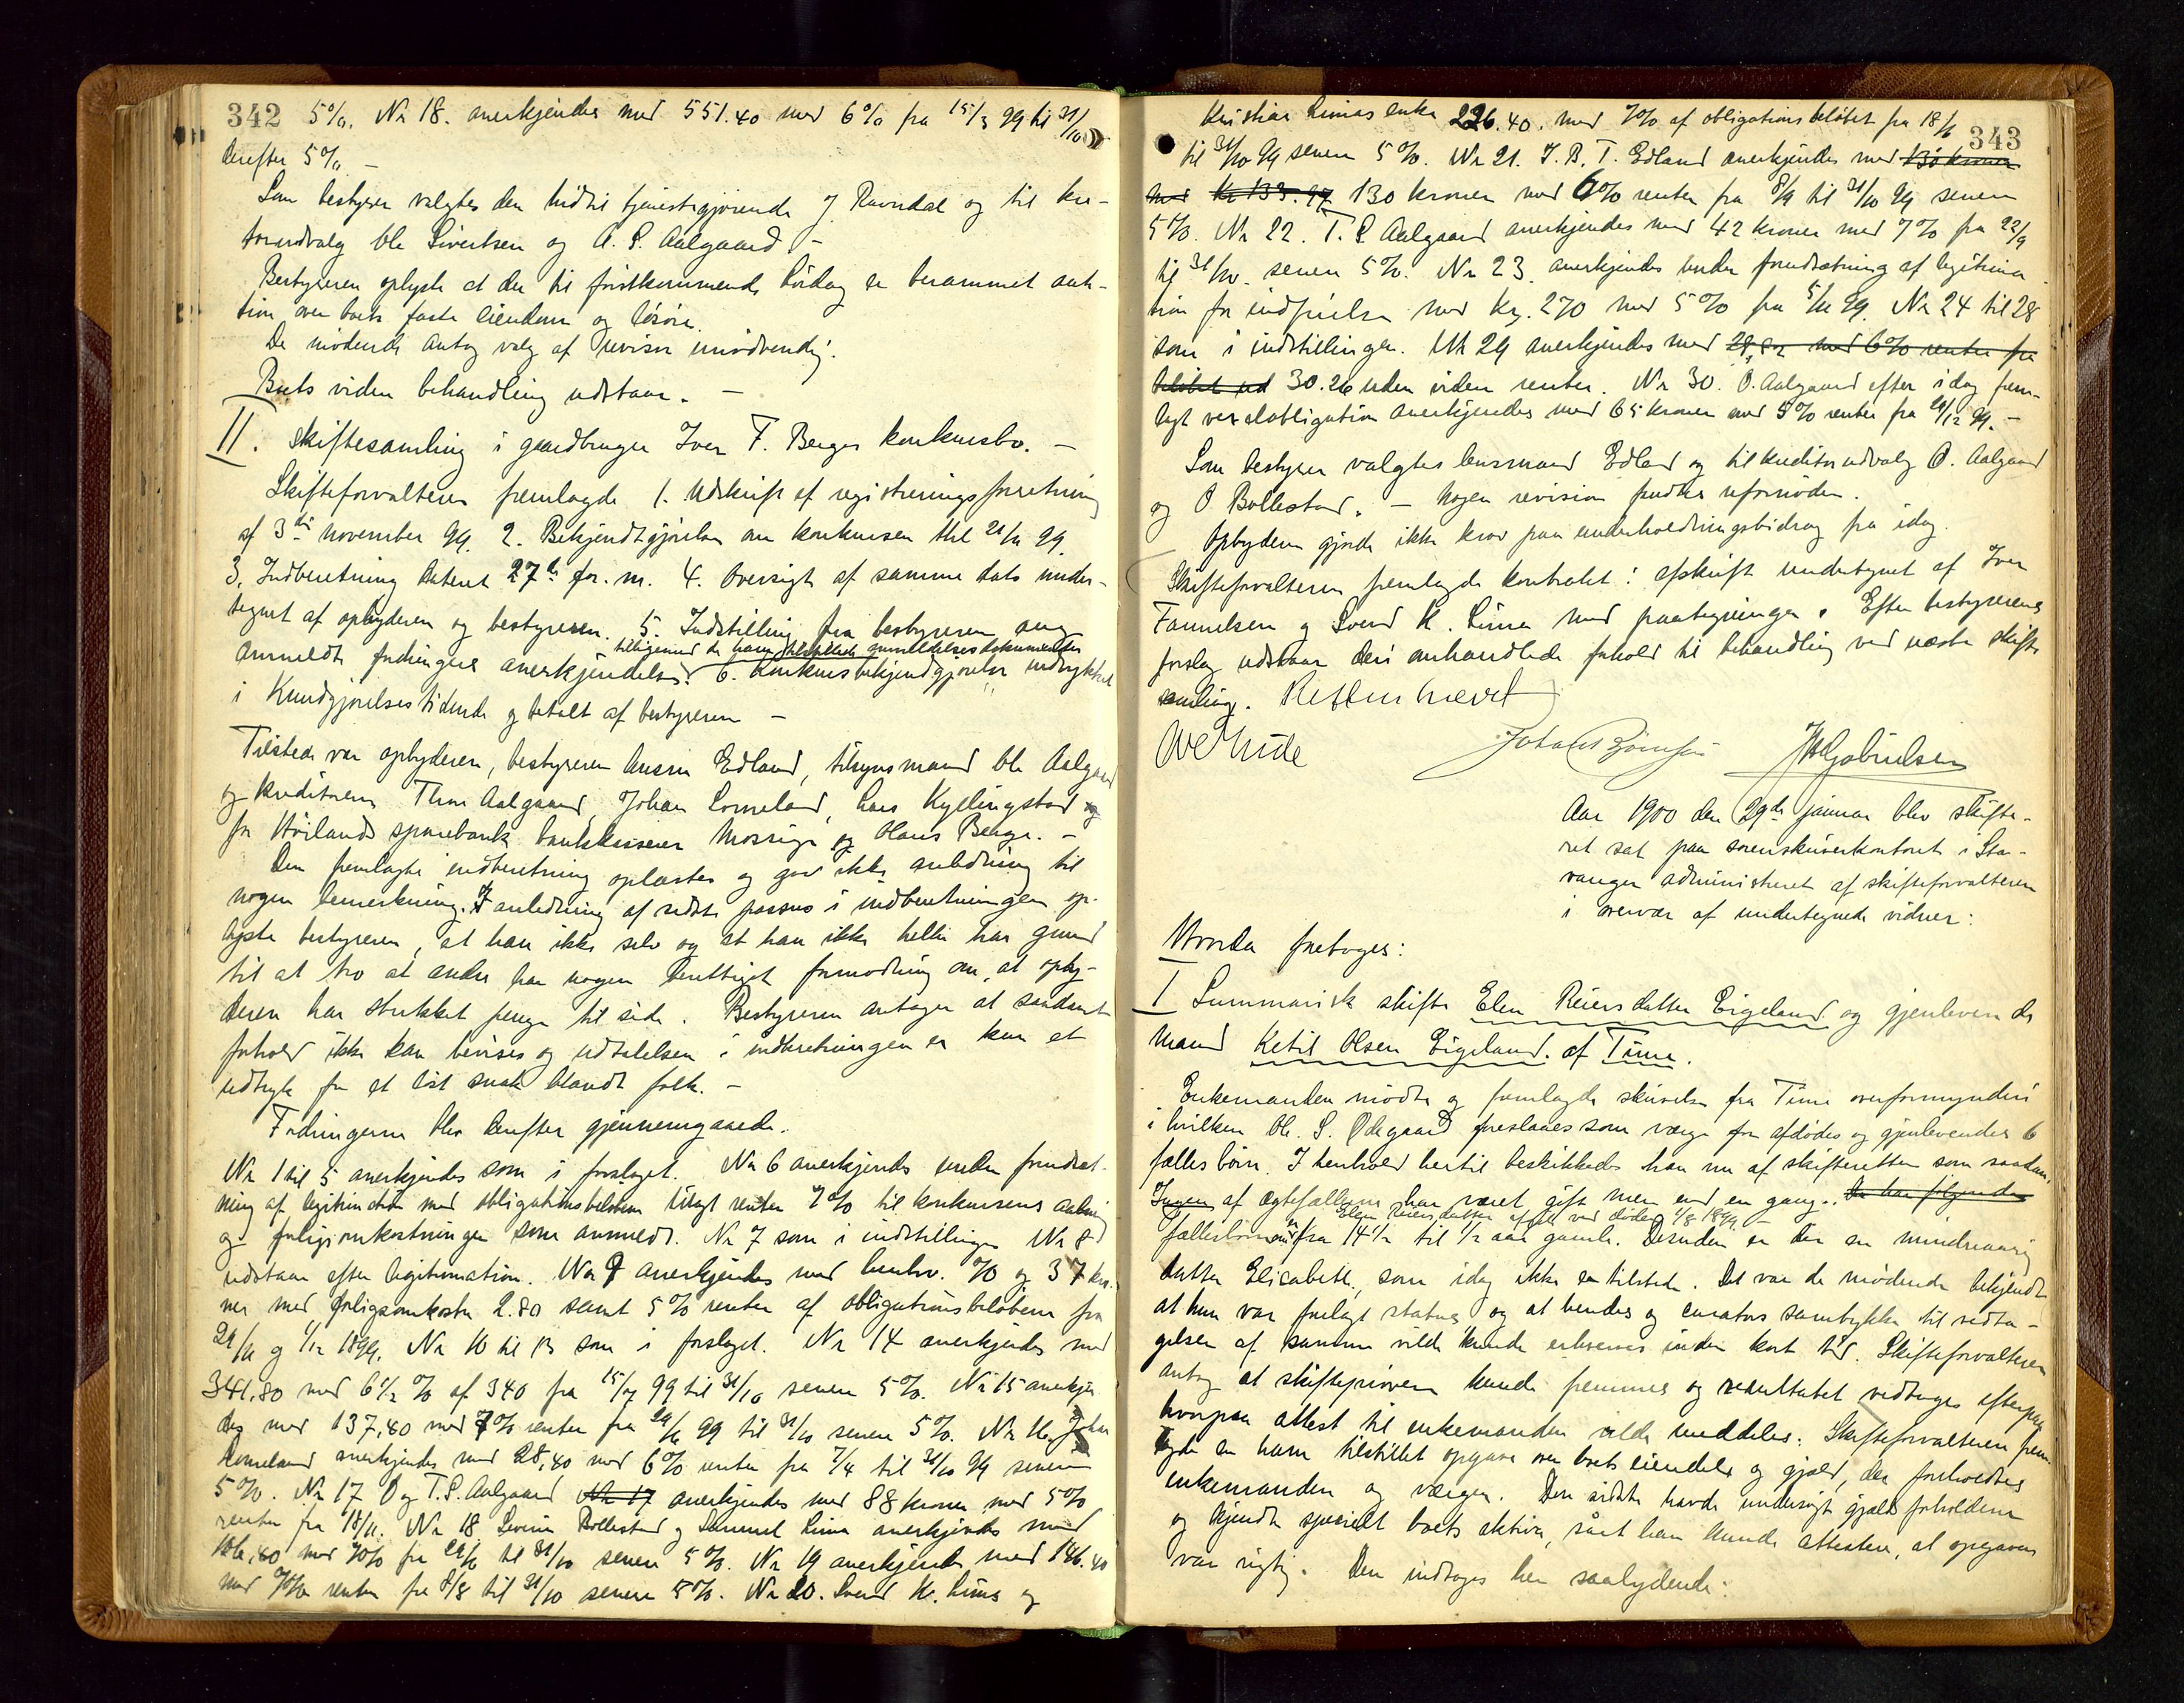 342 5%. Nr 18. anerkjendes med 551.40 med 6% fra 15/3 99 til 31/10
derefter 5% —
Som bestyrer valgtes den hidtil tjenestgjørende J Ravndal og til kre-
ditorudvalg blev Sivertsen og A. S. Aalgaard —
Bestyreren oplyste at der til førstkommende Lørdag er berammet auk-
tion over boets faste eiendom og løsøre.
De mødende antog valg af revisor unødvendig.
Boets videre behandling udstaar. —
II. Skiftesamling i gaardbruger Iver F. Berges konkursbo. —
Skifteforvalteren fremlagde 1. Udskrift af registreringsforretning
af 3die november 99. 2. Bekjendtgjørelse om konkursen 21/11 99.
3. Indberetning dateret 27de f. m. 4. Oversigt af samme dato under-
tegnet af opbyderen og bestyreren. 5. Indstilling fra bestyreren ang
tilligemed de ham tilstillede anmeldelsesdokumenter
anmeldte fordringers anerkjendelse. 6. Konkursbekjendtgjørelse indrykket
i Kundgjørelsestidende og betalt af bestyreren —
Tilstede var opbyderen, bestyreren Edland, tilsynsmand Aalgaard
og kreditorerne Thore Aalgaard, Johan Lomeland, Lars Kyllingstad og
for Høilands sparebank bankkasserer Mossige og Hans Berge. —
Den fremlagte indberetning oplæstes og gav ikke anledning til
nogen bemærkning. I anledning af sidste passus i indberetningen op-
lyste bestyreren, at han ikke selv og at han ikke heller har grund
til at tro at andre har nogen berettiget formodning om, at opby-
deren har stukket penge til side. Bestyreren antager at saadant
forhold ikke kan bevises og udtalelsen i indberetningen er kun et
udtryk for et løst snak blandt folk. —
Fordringerne blev derefter gjennemgaaede.
Nr 1 til 5 anerkjendes som i forslaget. Nr 6 anerkjendes under forudsæt-
ning af legitimation med obligationsbeløbene tillagt renter 7% til konkursens aabning
og forligsomkostninger som anmeldt. Nr 7 som i indstillingen Nr 8
udstaar efter legitimation. Nr 9 anerkjendes med henhv. 70 og 37 kro-
ner med forligsomkostn 2.80 samt 5% renter af obligationsbeløbene fra
29/11 og 1/12 1899. Nr 10 til 13 som i forslaget. Nr 14 anerkjendes med
341,80 med 6½ % af 340 fra 15/7 99 til 31/10 senere 5%. Nr 15 anerkjen-
des med 137,40 med 7% renter fra 29/6 99 til 31/10 senere 5%. Nr 16 Johan
Lomeland anerkjendes med 28,40 med 6% renter fra 7/4 til 31/10 99 senere
5%. Nr 17 O og T. S. Aalgaard Nr 17 anerkjendes med 88 kroner med 5%
renter fra 18/11. Nr 18 Severin Bollestad og Samuel Lima anerkjendes med
186,40 med 7% fra 29/6 til 31/10 senere 5%. Nr 19 anerkjendes med 186.40
med 7% renter fra 8/8 til 31/10 senere 5%. Nr 20. Svend K. Limas og
343
Kristian Limas enke 226.40. med 7% af obligationsbeløbet fra 18/6
til 31/10 99 senere 5%. Nr 21. J. B. T. Edland anerkjendes med 130 kroner
med kr 133.97 130 kroner med 6% renter fra 8/9 til 31/10 99 senere
5%. Nr 22. T. S. Aalgaard anerkjendes med 42 kroner med 7% fra 22/9
til 31/10. senere 5%. Nr 23. anerkjendes under forudsætning af legitima-
tion for indfrielse med Kr. 270 med 5% fra 5/11 99. Nr 24 til 28
som i indstillingen. Nr 29 anerkjendes med 28,82 med 6% renter fra
beløbet ud 30.26 uden videre renter. Nr 30. O. Aalgaard efter idag frem-
lagt vexelobligation anerkjendes med 65 kroner med 5% renter fra 29/12 99. —
Som bestyrer valgtes lensmand Edland og til kreditorudvalg O. Aalgaard
og O Bollestad. — Nogen revision fandtes ufornøden.
Opbyderen gjorde ikke krav paa underholdningsbidrag fra idag.
Skifteforvalteren fremlagde kontrakt i afskrift undertegnet af Iver
Tønnesen og Svend K. Lima med paategninger. Efter bestyrerens
forslag udstaar deri omhandlede forhold til behandling ved næste skifte-
samling. Retten hævet
Johan Bjørnsen JH Gabrielsen
Aar 1900 den 29de januar blev skifte-
ret sat paa sorenskriverkontoret i Sta-
vanger administreret af skifteforvalteren
i overvær af undertegnede vidner:
Hvorda foretoges:
I Summarisk skifte Elen Reiersdatter Eigeland og gjenlevende
mand Ketil Olsen Eigeland. af Time.
Enkemanden mødte og fremlagde skrivelse fra Time overformynderi
i hvilken Ole S. Ødegaard foreslaaes som værge for afdødes og gjenlevendes 6
fælles børn. I henhold hertil beskikkedes han nu af skifteretten som saadan.
Ingen af ægtefællerne har været gift mer end en gang. De har følgende
Elen Reiersdatter afgik ved døden 1/8 1899. —
fællesbørn er fra 14½ til ½ aar gamle. Desuden er der en mindreaarig
datter Elisabeth, som idag ikke er tilstede. Det var de mødende bekjendt
at hun var forelagt status og at hendes og curators samtykke til vedta-
gelsen af samme vilde kunde erhverves inden kort tid. Skifteforvalteren
antog at skifteprøven kunde fremmes og resultatet vedtages efterpaa
hvorpaa attest til enkemanden vilde meddeles. Skifteforvalteren frem-
lagde en ham tilstillet opgave over boets eiendele og gjæld, der foreholdtes
enkemanden og værgen. Den sidste havde undersøgt gjældsforholdene
og kjendte specielt boets aktiva, saat han kunde attestere, at opgaven
var rigtig. Den indtages her saalydende: